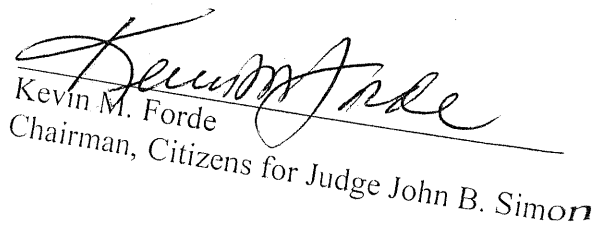 Kevin M Forde
Kevin M. Forde
Chairman, Citizens for Judge John B. Simon